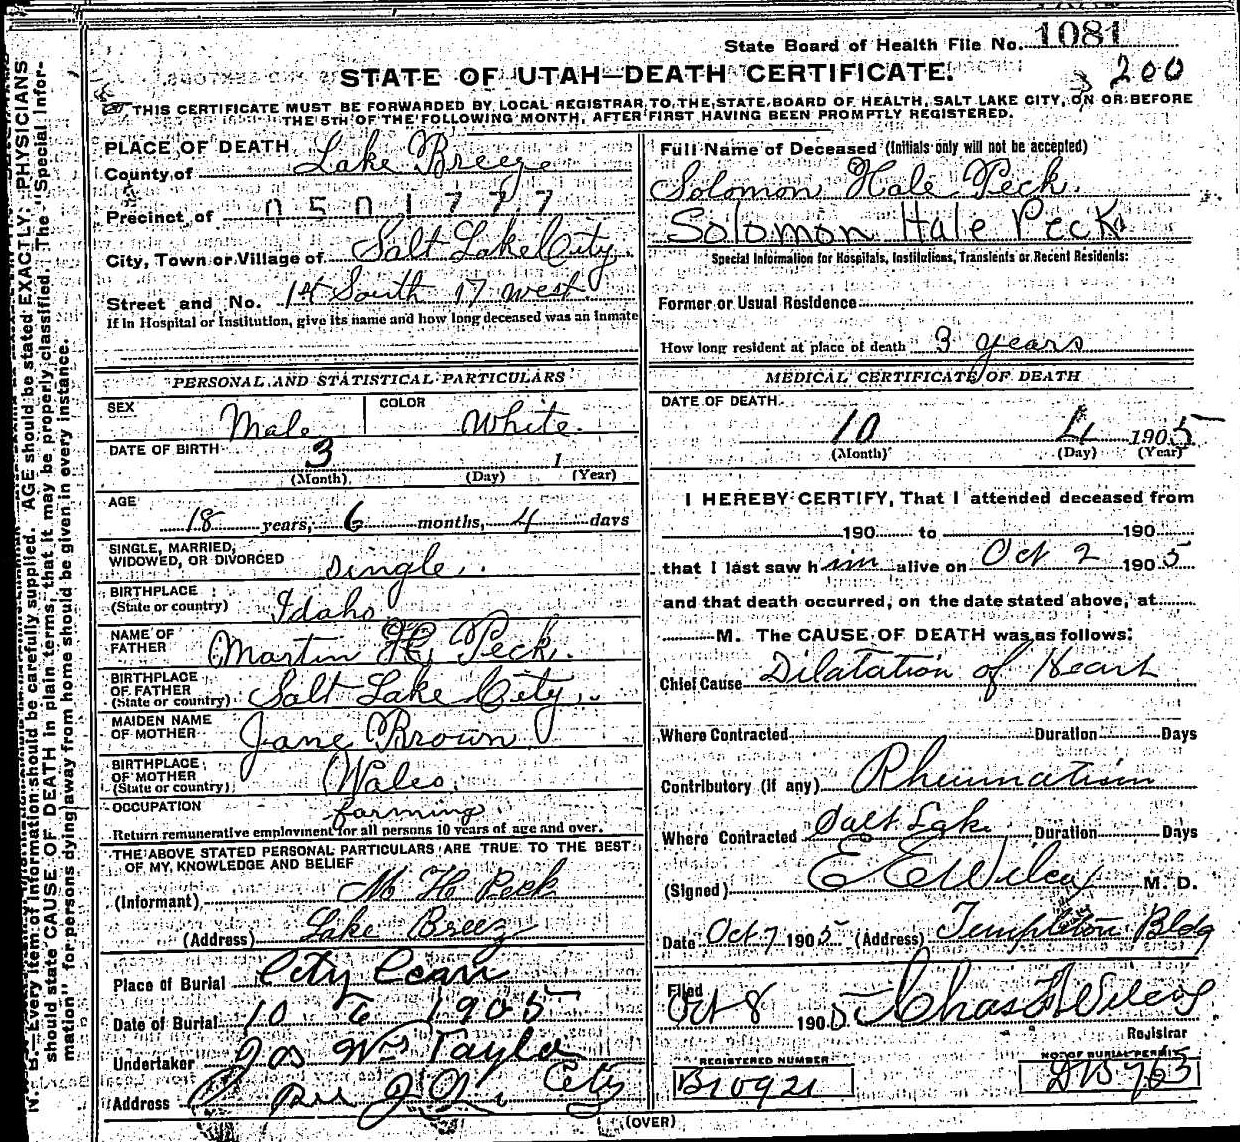 State Board of Health File No. 1081
200
STATE OF UTAH—DEATH CERTIFICATE.
THIS CERTIFICATE MUST BE FORWARDED BY LOCAL REGISTRAR TO THE STATE BOARD OF HEALTH, SALT LAKE CITY, ON OR BEFORE
THE 5TH OF THE FOLLOWING MONTH, AFTER FIRST HAVING BEEN PROMPTLY REGISTERED.
PLACE OF DEATH
County of Lake Breeze
Precinct of 0501777
City, Town or Village of Salt Lake City
Street and No. 1st South 17 west
If in Hospital or Institution, give its name and how long deceased was an inmate
PERSONAL AND STATISTICAL PARTICULARS
SEX Male COLOR White
DATE OF BIRTH 3 1
(Month) (Day) (Year)
AGE
18 years, 6 months, 4 days
SINGLE, MARRIED,
WIDOWED, OR DIVORCED Single
BIRTHPLACE
(State or country) Idaho
NAME OF
FATHER Martin H. Peck.
BIRTHPLACE
OF FATHER
(State or country) Salt Lake City
MAIDEN NAME
OF MOTHER Jane Brown
BIRTHPLACE
OF MOTHER
(State or country) Wales
OCCUPATION farming
Return remunerative employment for all persons 10 years of age and over.
THE ABOVE STATED PERSONAL PARTICULARS ARE TRUE TO THE BEST
OF MY KNOWLEDGE AND BELIEF
(Informant) M H Peck
(Address) Lake Breez
Place of Burial City Cem
Date of Burial 10 6 1905
Undertaker Jas Wm Taylor
Address City
Full Name of Deceased (Initials only will not be accepted)
Solomon Hale Peck
Solomon Hale Peck
Special Information for Hospitals, Institutions, Transients or Recent Residents:
Former or Usual Residence
How long resident at place of death 3 years
MEDICAL CERTIFICATE OF DEATH
DATE OF DEATH
10 4 1905
(Month) (Day) (Year)
I HEREBY CERTIFY, That I attended deceased from
190 to 190
that I last saw him alive on Oct 2 1905
and that death occurred, on the date stated above, at
M. The CAUSE OF DEATH was as follows:
Chief Cause Dilatation of Heart
Where Contracted Duration Days
Contributory (if any) Rheumatism
Where Contracted Salt Lake Duration Days
(Signed) E E Wilcox M. D.
Date Oct 7 1905 (Address) Templeton Bldg
Filed
Oct 8 1905 Chas F Wilcox
Registrar
REGISTERED NUMBER
B10921
NO. OF BURIAL PERMIT
(OVER)
N. B.—Every item of information should be carefully supplied. AGE should be stated EXACTLY. PHYSICIANS
should state CAUSE OF DEATH in plain terms, that it may be properly classified. The "Special Infor-
mation" for persons dying away from home should be given in every instance.